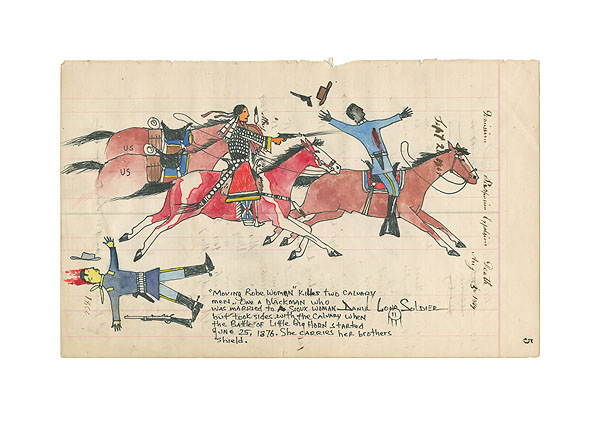 US
US
Sept
Death
Aug
"MOVING ROBE WOMAN" Kills TWO CALVARY
men. One a blackman who
was married to a Sioux woman DANIEL LONG SOLDIER
but took sides with the Calvary when
the Battle of Little Big Horn started
JUNE 25, 1876. She CARRIES her brothers
shield.
5